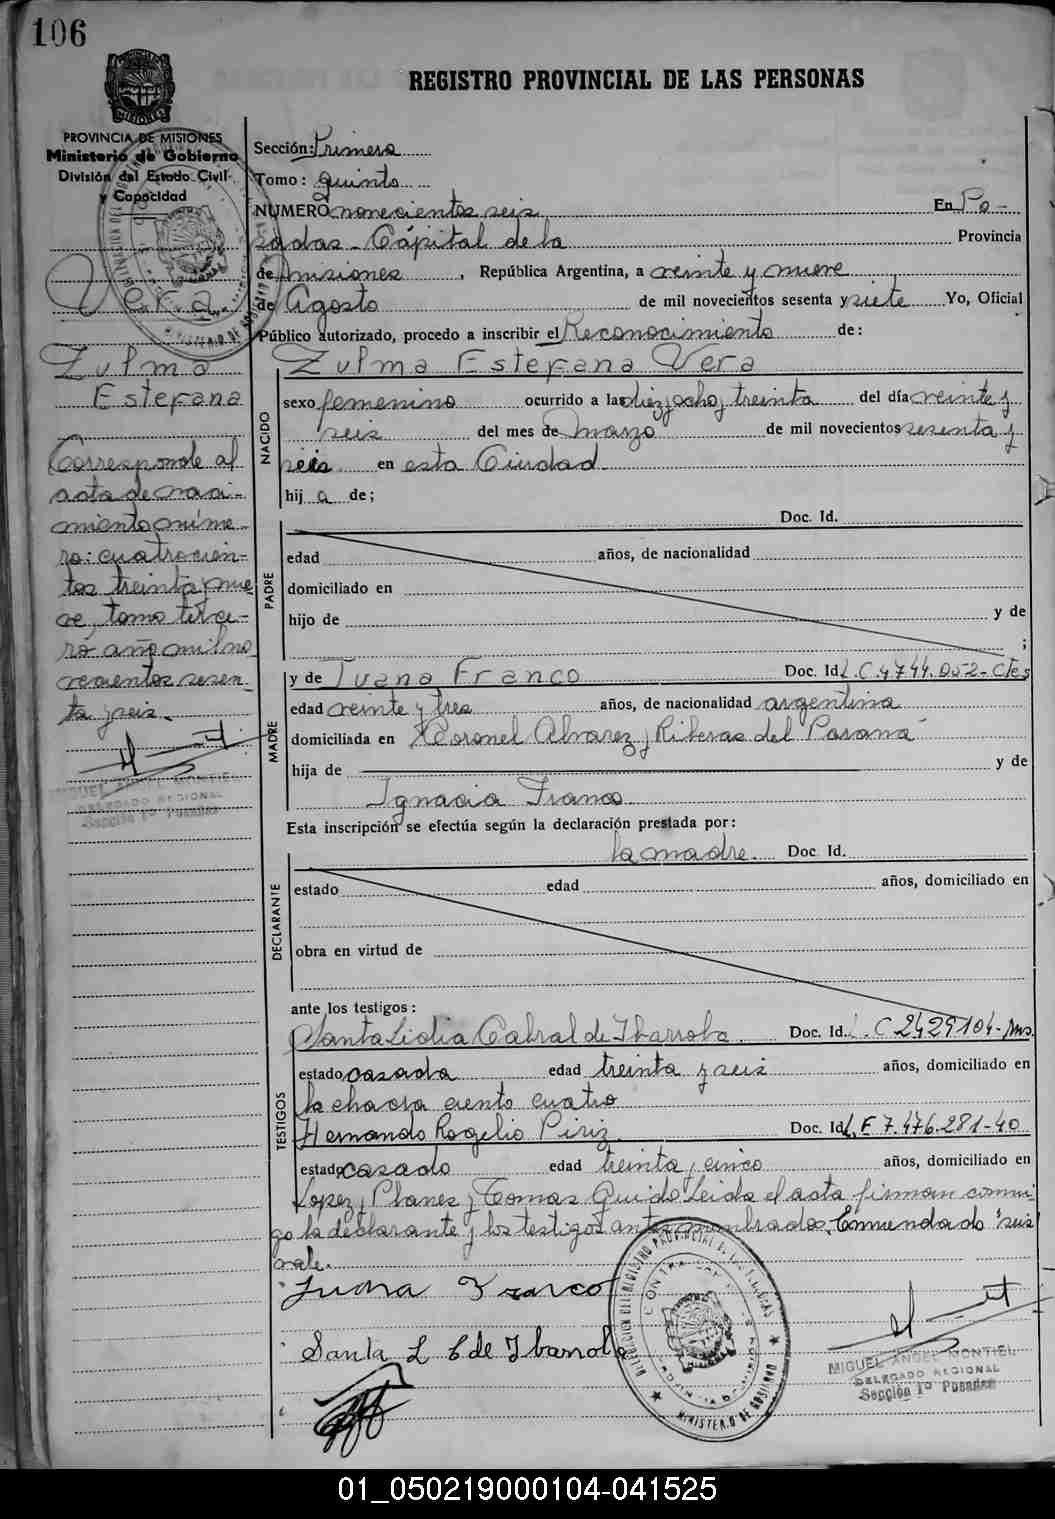 106
REGISTRO PROVINCIAL DE LAS PERSONAS
PROVINCIA DE MISIONES
Ministerio de Gobierno
División del Estado Civil
y Capacidad
Vera
Zulma
Estefana
Corresponde al
acta de naci-
miento núme-
ro: cuatrocien-
tos treinta y nue
ve, tomo terce-
ro año mil no
vecientos sesen
ta y seis.
MIGUEL ANGEL MONTIEL
DELEGADO REGIONAL
Sección 1º Posadas
Sección: Primera
Tomo: quinto
NUMERO novecientos seis En Po-
sadas - Cápital de la Provincia
de misiones, República Argentina, a veinte y nueve
de Agosto de mil novecientos sesenta y siete Yo, Oficial
Público autorizado, procedo a inscribir el Reconocimiento de:
NACIDO
Zulma Estefana Vera
sexo femenino ocurrido a las diez y ocho y treinta del día veinte y
seis del mes de marzo de mil novecientos sesenta y
seis en esta Ciudad
hij a de;
PADRE
Doc. Id.
edad años, de nacionalidad
domiciliado en
hijo de y de
;
MADRE
y de Juana Franco Doc. Id. L.C. 4.744.052 - Ctes
edad veinte y tres años, de nacionalidad argentina
domiciliada en Coronel Alvarez y Riberas del Paraná
hija de y de
Ignacia Franco
Esta inscripción se efectúa según la declaración prestada por:
la madre. Doc. Id.
DECLARANTE
estado edad años, domiciliado en
obra en virtud de
ante los testigos:
TESTIGOS
Santa Lidia Cabral de Ibarrola Doc. Id. L.C 2429104 - Ms.
estado casada edad treinta y seis años, domiciliado en
la chacra ciento cuatro
Hernando Rogelio Piriz Doc. Id. L.E 7.476.281-40
estado casado edad treinta y cinco años, domiciliado en
Lopez y Planes y Tomas Guido Leida el acta firman conmi
go la declarante y los testigos antes nombrados. Enmendado "seis"
vale.
Juana Franco
Santa L C de Ibarrola
MINISTERIO DE GOBIERNO
MIGUEL ANGEL MONTIEL
DELEGADO REGIONAL
Sección 1º Posadas
01_050219000104-041525